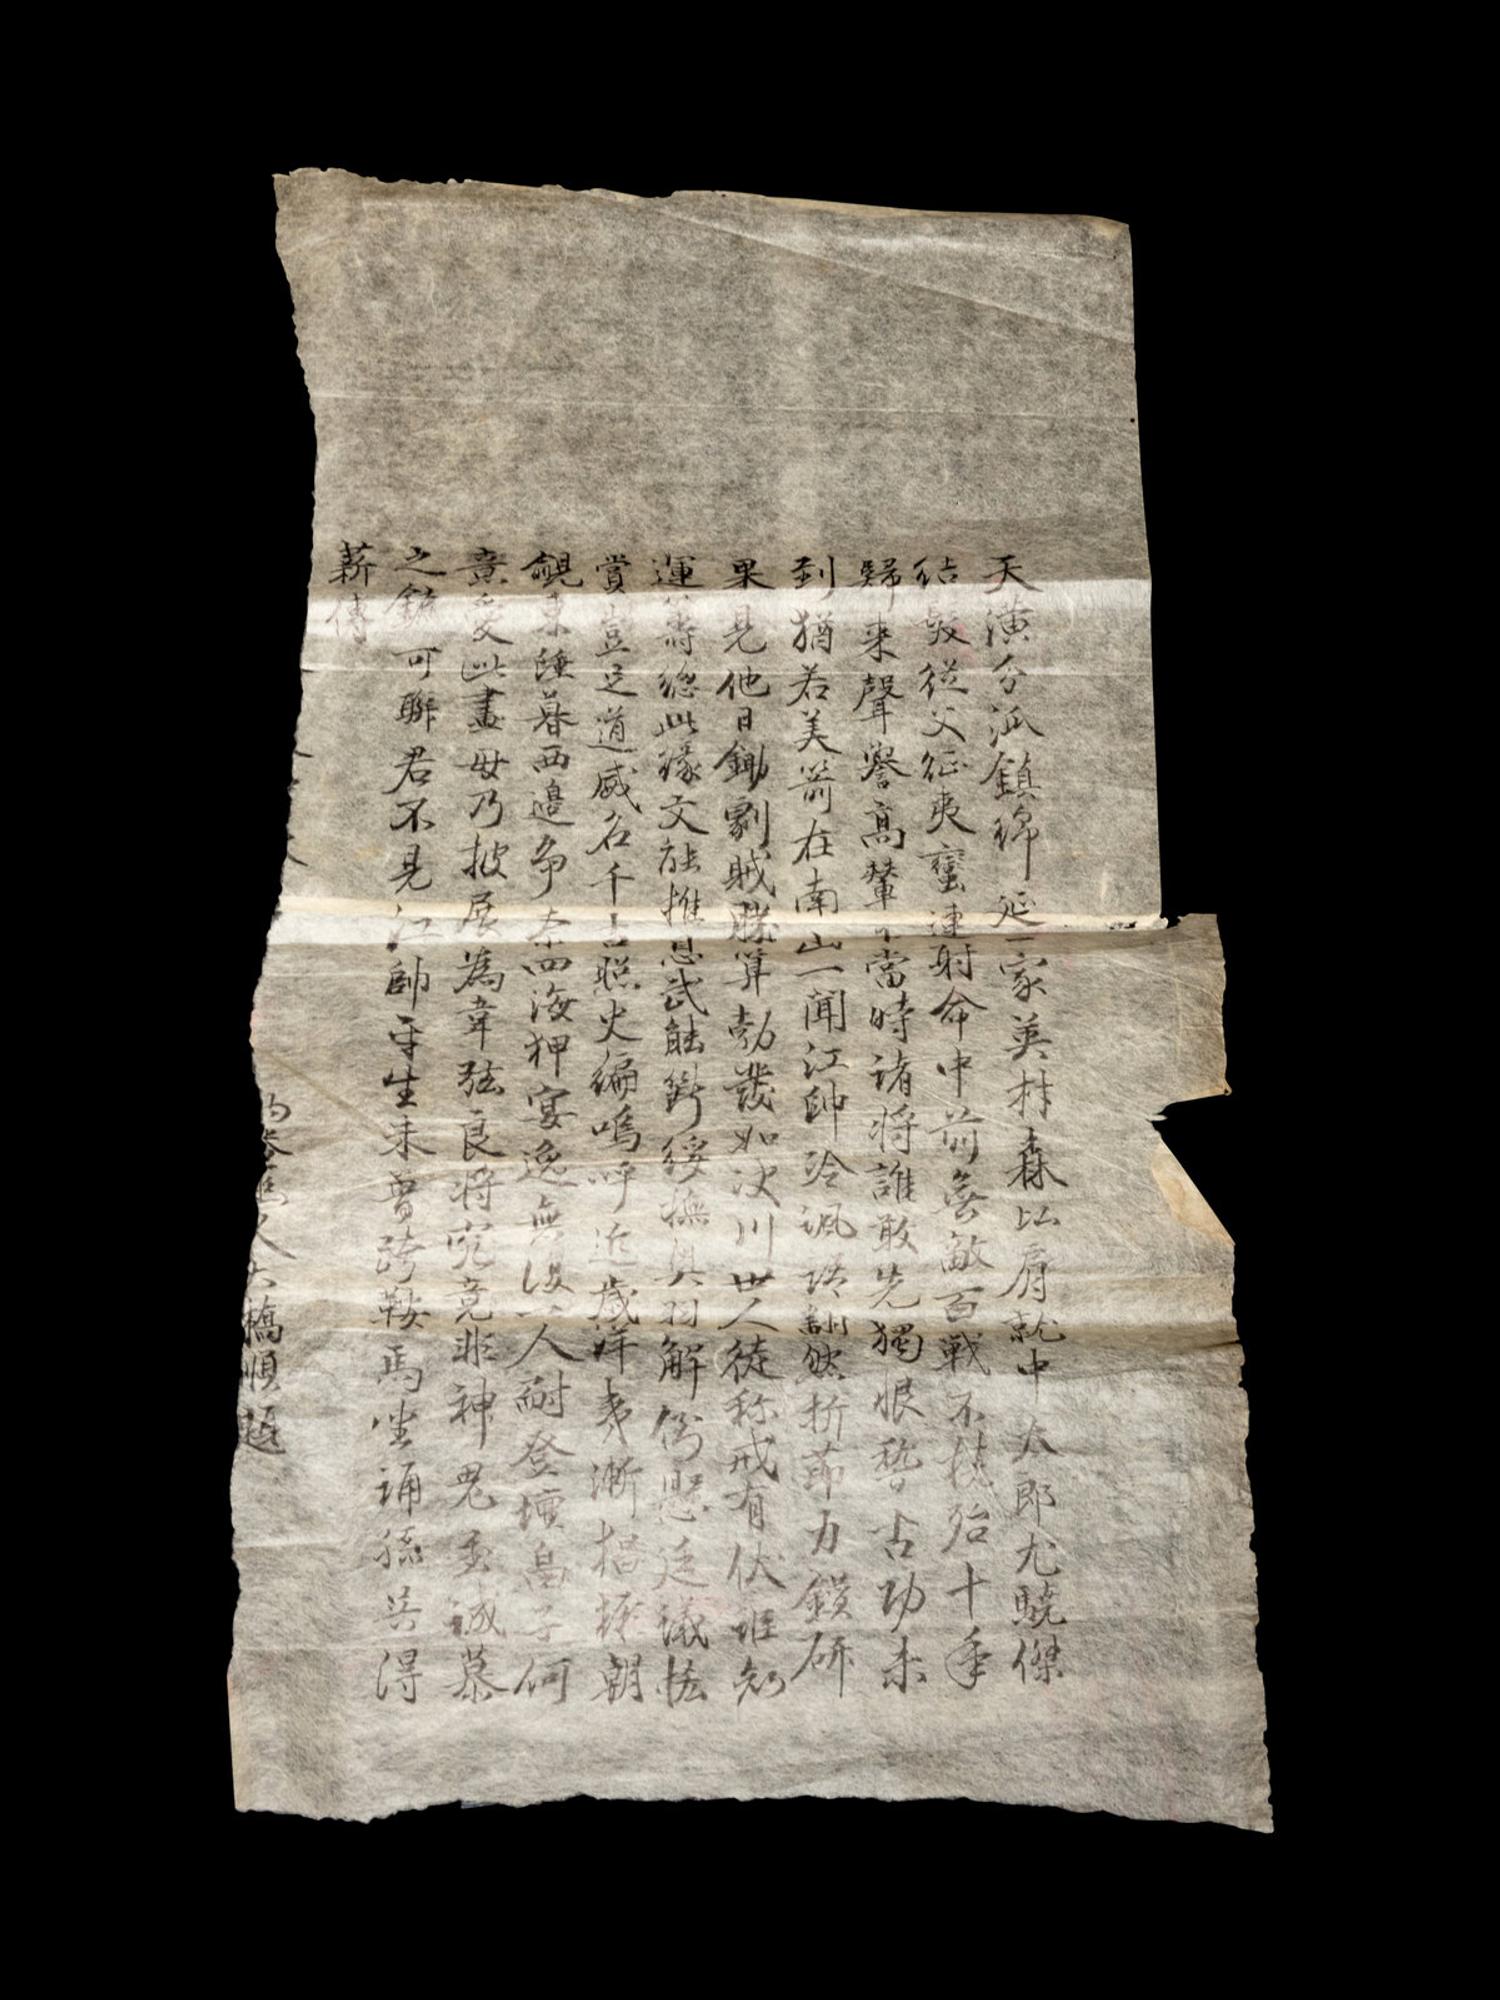 天潢分派鎮綿延一家英材森比肩就中太郎尤驍傑
結髮從父征夷蠻連射命中前無敵百戰不撓殆十年
歸來聲譽高輦下當時諸將誰敢先獨恨稽古功未
到猶若美箭在南山一聞江帥冷諷語翻然折節力鑽研
果見他日鋤劇賊勝算勃發如決川世人徒称戒有伏誰知
運籌總此緣文能推恩武能斷綏撫奥羽解倒懸廷議恡
賞豈足道威名千古照史編嗚呼近歲洋夷漸猖獗朝
覦東陲暮西邊爭奈四海狎宴逸無復一人耐登壇畠子何
意愛此畫毋乃披展為韋弦良將究竟非神鬼至誠慕
之鑣可聯君不見江帥平生未曾跨鞍馬坐誦孫吳得
薪傳
大橋順題